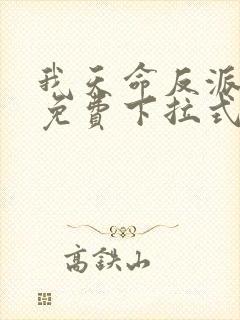 我天命反派
免費下拉式
高鉄山